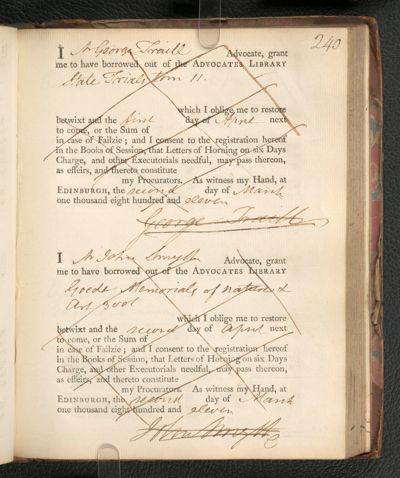 240
I Mr George Traill Advocate, grant
me to have borrowed out of the ADVOCATES LIBRARY
State Trials Vom 11.
which I oblige me to restore
betwixt and the first day of April next
to come, or the Sum of
in case of Failzie; and I consent to the registration hereof
in the Books of Session, that Letters of Horning on six Days
Charge, and other Executorials needful, may pass thereon,
as effeirs, and thereto constitute
my Procurators. As witness my Hand, at
EDINBURGH, the second day of March
one thousand eight hundred and eleven
George Traill
I Mr John Smyth Advocate, grant
me to have borrowed out of the ADVOCATES LIBRARY
Goede Memorials of nature &
Art 3 vol
which I oblige me to restore
betwixt and the second day of April next
to come, or the Sum of
in case of Failzie; and I consent to the registration hereof
in the Books of Session, that Letters of Horning on six Days
Charge, and other Executorials needful, may pass thereon,
as effeirs, and thereto constitute
my Procurators. As witness my Hand, at
EDINBURGH, the second day of March
one thousand eight hundred and eleven
John Smyth